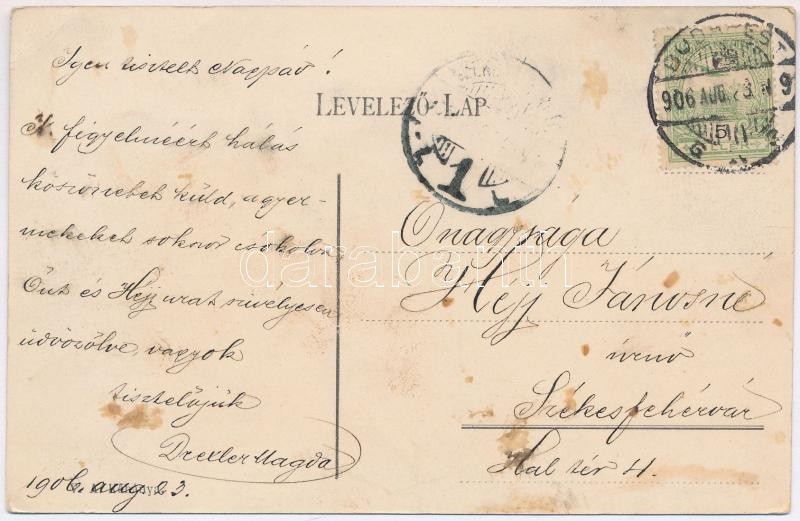 Igen tisztelt Nagysád!
LEVELEZŐ-LAP
BUDAPEST
906 AUG. 23.
5
1
N. figyelméért hálás
köszönetet küld, a gyer-
mekeket sokszor csókolva
Önt és Hejj urat szívélyesen
üdvözölve, vagyok
tisztelőjük
Drexler Magda
1906. aug 23.
Őnagysága
Hejj Jánosné
úrnő
Székesfehérvár
Hal tér 4.
darabanth